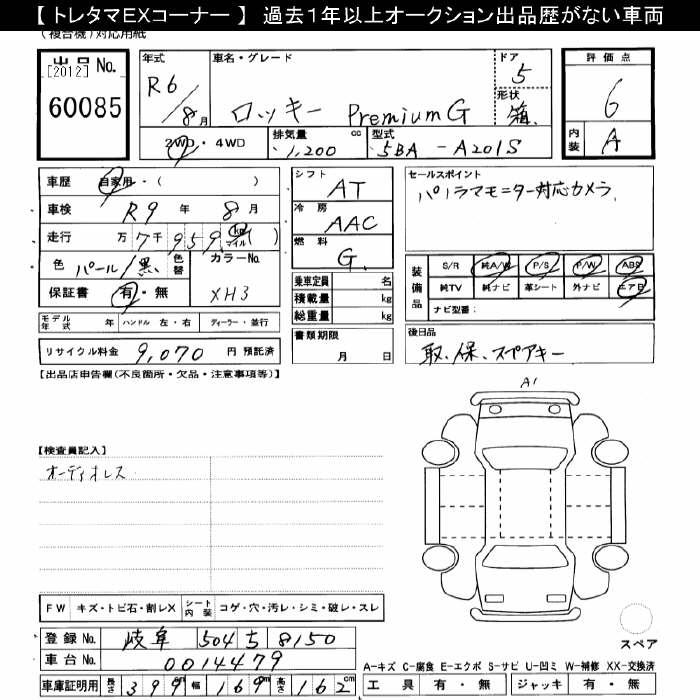 【 トレタマEXコーナー 】 過去1年以上オークション出品歴がない車両
(複合機)対応用紙
出品 No.
[2012]
60085
年式
R6/8月
車名・グレード
ロッキー PremiumG
ドア
5
形状
箱
評価点
6
内装
A
2WD・4WD
排気量 1,200 cc
型式 5BA - A201S
車歴 自家用・( )
車検 R9 年 8 月
走行 万 7 千 959 km マイル ( )
色 パール/黒 色替
カラーNo. XH3
保証書 有・無
シフト AT
冷房 AAC
燃料 G
乗車定員 名
積載量 kg
総重量 kg
セールスポイント
パノラマモニター対応カメラ
装備品
S/R 純A/W P/S P/W ABS
純TV 純ナビ 革シート 外ナビ エアB
ナビ型番:
モデル年式 年 ハンドル 左・右 ディーラー・並行
リサイクル料金 9,070 円 預託済
書類期限
月 日
後日品
取、保、スペアキー
【出品店申告欄(不良箇所・欠品・注意事項等)】
A1
【検査員記入】
オーディオレス
FW キズ・トビ石・割レX シート内装 コゲ・穴・汚レ・シミ・破レ・スレ
登録 No. 岐阜 504 ち 8150
車台 No. 0014479
車庫証明用 長さ 399 cm 幅 169 cm 高さ 162 cm
スペア
A-キズ C-腐食 E-エクボ S-サビ U-凹ミ W-補修 XX-交換済
工具 有・無 ジャッキ 有・無